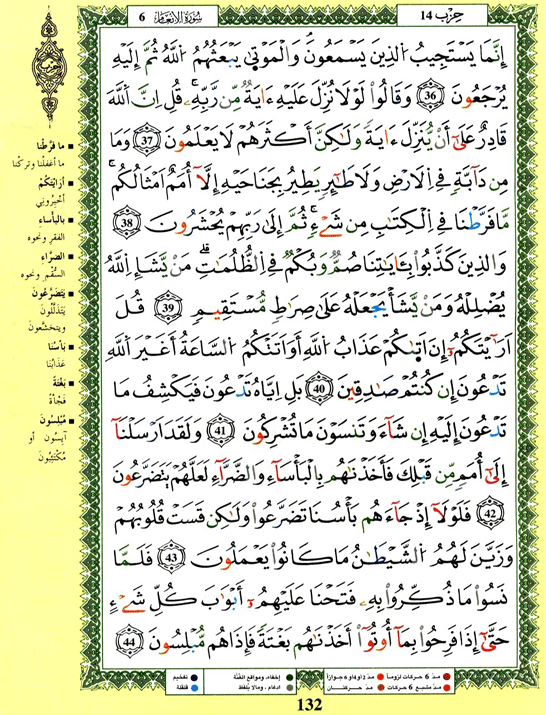 6 سُورَةُ الأَنْعَامِ
حِزْب 14
إِنَّمَا يَسْتَجِيبُ اُ۬لذِينَ يَسْمَعُونَۖ وَالْمَوْتَىٰ يَبْعَثُهُمُ اُ۬للَّهُ ثُمَّ إِلَيْهِ
يُرْجَعُونَ 36 وَقَالُواْ لَوْلَا نُزِّلَ عَلَيْهِ ءَايَةٌ مِّن رَّبِّهِۦۖ قُلِ اِنَّ اَ۬للَّهَ
قَادِرٌ عَلَىٰٓ أَنْ يُّنَزِّلَ ءَايَةً وَلَٰكِنَّ أَكْثَرَهُمْ لَا يَعْلَمُونَ 37 وَمَا
مِن دَآبَّةٍ فِي اِ۬لَارْضِ وَلَا طَٰٓئِرٍ يَطِيرُ بِجَنَاحَيْهِ إِلَّآ أُمَمٌ اَمْثَالُكُمۖ
مَّا فَرَّطْنَا فِي اِ۬لْكِتَٰبِ مِن شَےْءٍۖ ثُمَّ إِلَىٰ رَبِّهِمْ يُحْشَرُونَ 38
وَالذِينَ كَذَّبُواْ بِـَٔايَٰتِنَا صُمٌّ وَبُكْمٌ فِي اِ۬لظُّلُمَٰتِۖ مَنْ يَّشَإِ اِ۬للَّهُ
يُضْلِلْهُ وَمَنْ يَّشَأْ يَجْعَلْهُ عَلَىٰ صِرَٰطٍ مُّسْتَقِيمٍ 39 قُلَ
اَرَٰٓيْتَكُمُۥٓ إِنَ اَت۪ىٰكُمْ عَذَابُ اُ۬للَّهِ أَوَ اَتَتْكُمُ اُ۬لسَّاعَةُ أَغَيْرَ اَ۬للَّهِ
تَدْعُونَ إِن كُنتُمْ صَٰدِقِينَ 40 بَلِ اِيَّاهُ تَدْعُونَ فَيَكْشِفُ مَا
تَدْعُونَ إِلَيْهِ إِن شَآءَ وَتَنسَوْنَ مَا تُشْرِكُونَ 41 وَلَقَدَ اَرْسَلْنَآ
إِلَىٰٓ أُمَمٍ مِّن قَبْلِكَ فَأَخَذْنَٰهُم بِالْبَأْسَآءِ وَالضَّرَّآءِ لَعَلَّهُمْ يَتَضَرَّعُونَ
42 فَلَوْلَآ إِذْ جَآءَهُم بَأْسُنَا تَضَرَّعُواْ وَلَٰكِن قَسَتْ قُلُوبُهُمْ
وَزَيَّنَ لَهُمُ اُ۬لشَّيْطَٰنُ مَا كَانُواْ يَعْمَلُونَ 43 فَلَمَّا
نَسُواْ مَا ذُكِّرُواْ بِهِۦ فَتَحْنَا عَلَيْهِمُۥٓ أَبْوَٰبَ كُلِّ شَےْءٍ
حَتَّىٰٓ إِذَا فَرِحُواْ بِمَآ أُوتُوٓاْ أَخَذْنَٰهُم بَغْتَةً فَإِذَا هُم مُّبْلِسُونَ 44
حزب
■ ما فَرَّطْنا
ما أغفلْنا وتركْنا
■ أرَايْتَكُمْ
أخبروني
■ بالبأساءِ
الفقرِ ونحوِه
■ الضرَّاءِ
السُّقمِ ونحوِه
■ يَتَضَرَّعُونَ
يَتَذَلَّلُونَ
ويتخشّعونَ
■ بأسُنا
عَذَابُنا
■ بَغْتَةً
فَجْأةً
■ مُبْلِسُونَ
آيِسُونَ أو
مُكْتَئِبُونَ
مدّ 6 حركات لزوماً مدّ 2 أو 4 أو 6 جوازاً إخفاء، ومواقع الغُنَّة تفخيم
مدّ مشبع 6 حركات مدّ حركتان ادغام، ومالا يُلفَظ قلقلة
132